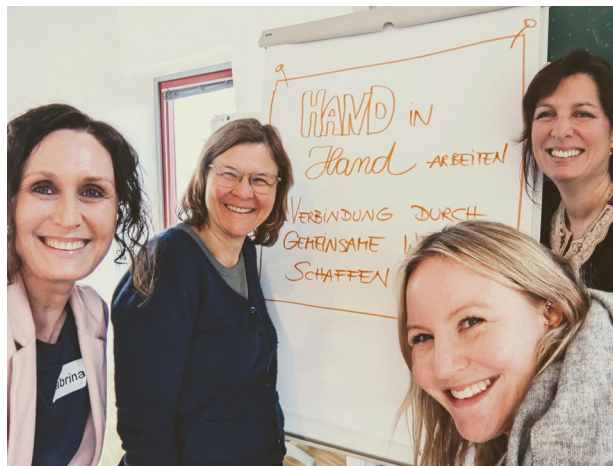 HAND IN
Hand ARBEITEN
VERBINDUNG DURCH
GEMEINSAME
SCHAFFEN
abrina